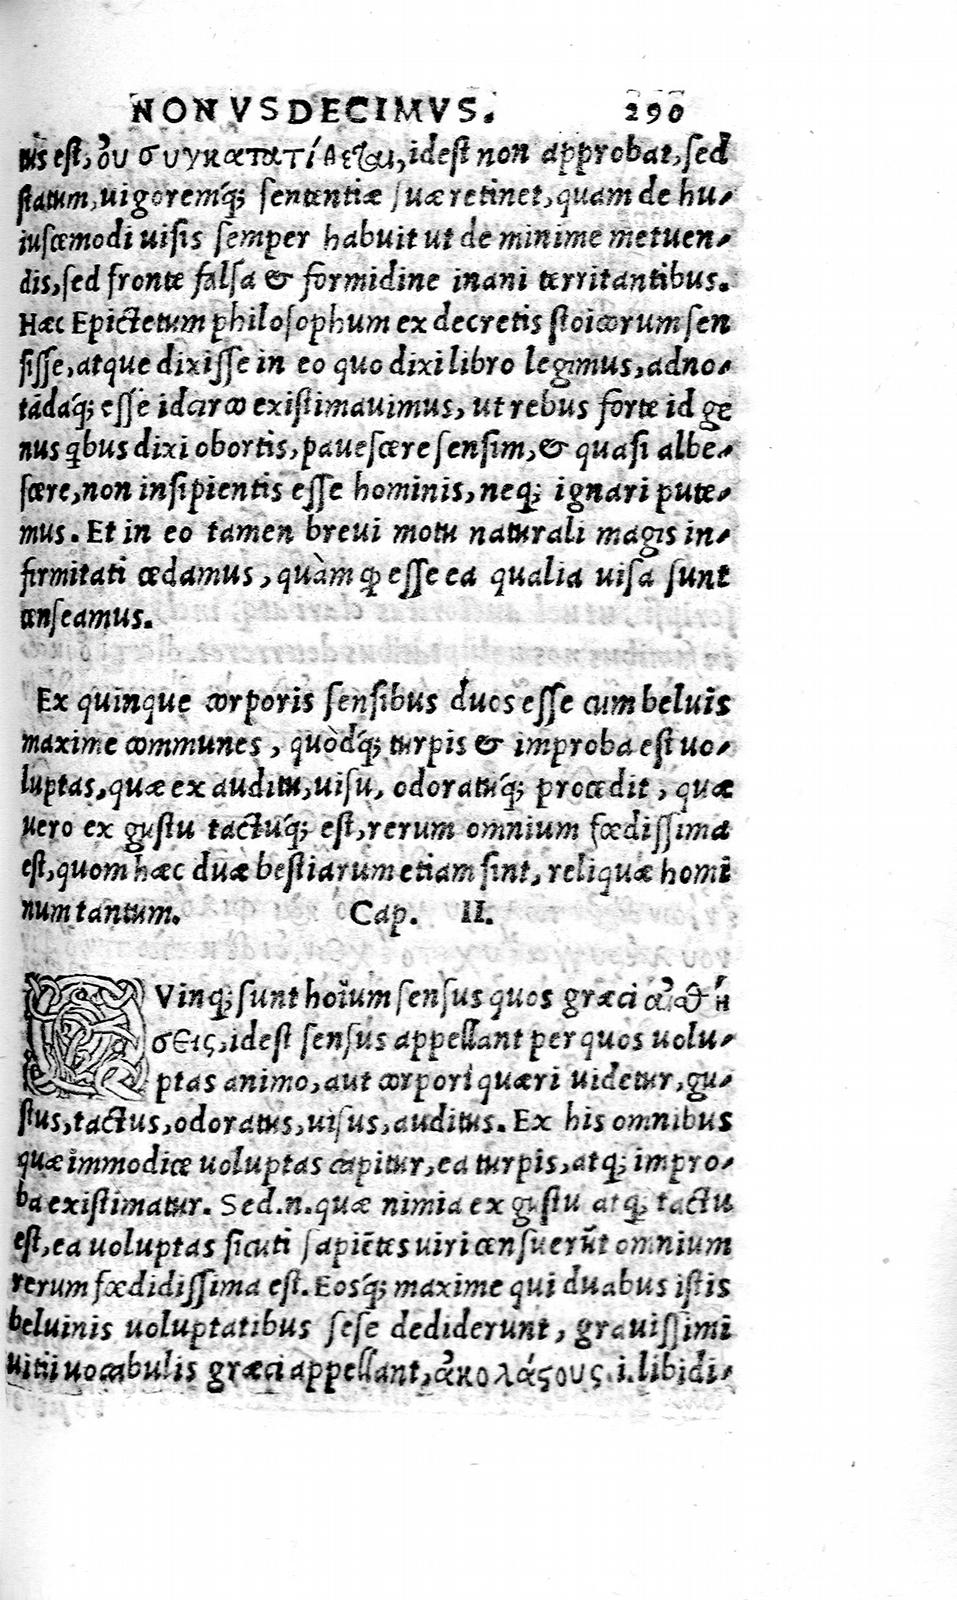 NONVSDECIMVS. 290
tus est, ὀυ συγκατατίθεται, idest non approbat, sed
statum, uigoremq́; sententiæ suæ retinet, quam de hu-
iuscemodi uisis semper habuit ut de minime metuen-
dis, sed fronte falsa & formidine inani territantibus.
Hæc Epictetum philosophum ex decretis stoicorum sen
sisse, atque dixisse in eo quo dixi libro legimus, adno-
tādaq́; esse idcirco existimauimus, ut rebus forte id ge
nus qbus dixi obortis, pauescere sensim, & quasi albe-
scere, non insipientis esse hominis, neq; ignari pute-
mus. Et in eo tamen breui motu naturali magis in-
firmitati cedamus, quàm ꝙ esse ea qualia uisa sunt
censeamus.
Ex quinque corporis sensibus duos esse cum beluis
maxime communes, quòdq́; turpis & improba est uo-
luptas, quæ ex auditu, uisu, odoratuq́; procedit, quæ
uero ex gustu tactuq́; est, rerum omnium fœdissima
est, quom hæc duæ bestiarum etiam sint, reliquæ homi
num tantum. Cap. II.
QVinq; sunt hoīum sensus quos græci αἰσθή
σεις, idest sensus appellant per quos uolu-
ptas animo, aut corpori quæri uidetur, gu-
stus, tactus, odoratus, uisus, auditus. Ex his omnibus
quæ immodice uoluptas capitur, ea turpis, atq; impro-
ba existimatur. Sed.n.quæ nimia ex gustu atq; tactu
est, ea uoluptas sicuti sapiētes uiri censuerūt omnium
rerum fœdidissima est. Eosq́; maxime qui duabus istis
beluinis uoluptatibus sese dediderunt, grauissimi
uitii uocabulis græci appellant, ἀκολάςους .i. libidi-